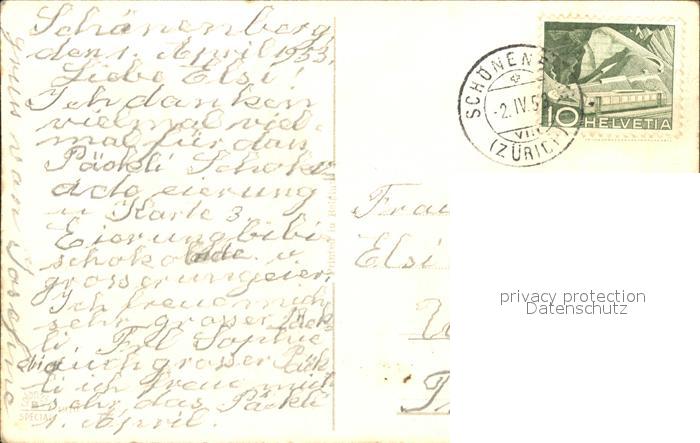 Schönenberg
den 1. April 1953.
Liebe Elsi!
Ich danken
vielmal viel-
mal für dan
Päckli Schok
ade eierung
u Karte 3
Eierungbibi
schokolade u.
grosserungeier
Ich freue mich
sehr grosser Päck-
li. Frl Sophie
auch grosser Päck
li ich freue mich
sehr das Päckli
1. April.
gruss von
Printed in Belgium
SPECIAL
SCHÖNENB
-2.IV.5
(ZÜRICH)
10
HELVETIA
Frau
Elsi
privacy protection
Datenschutz